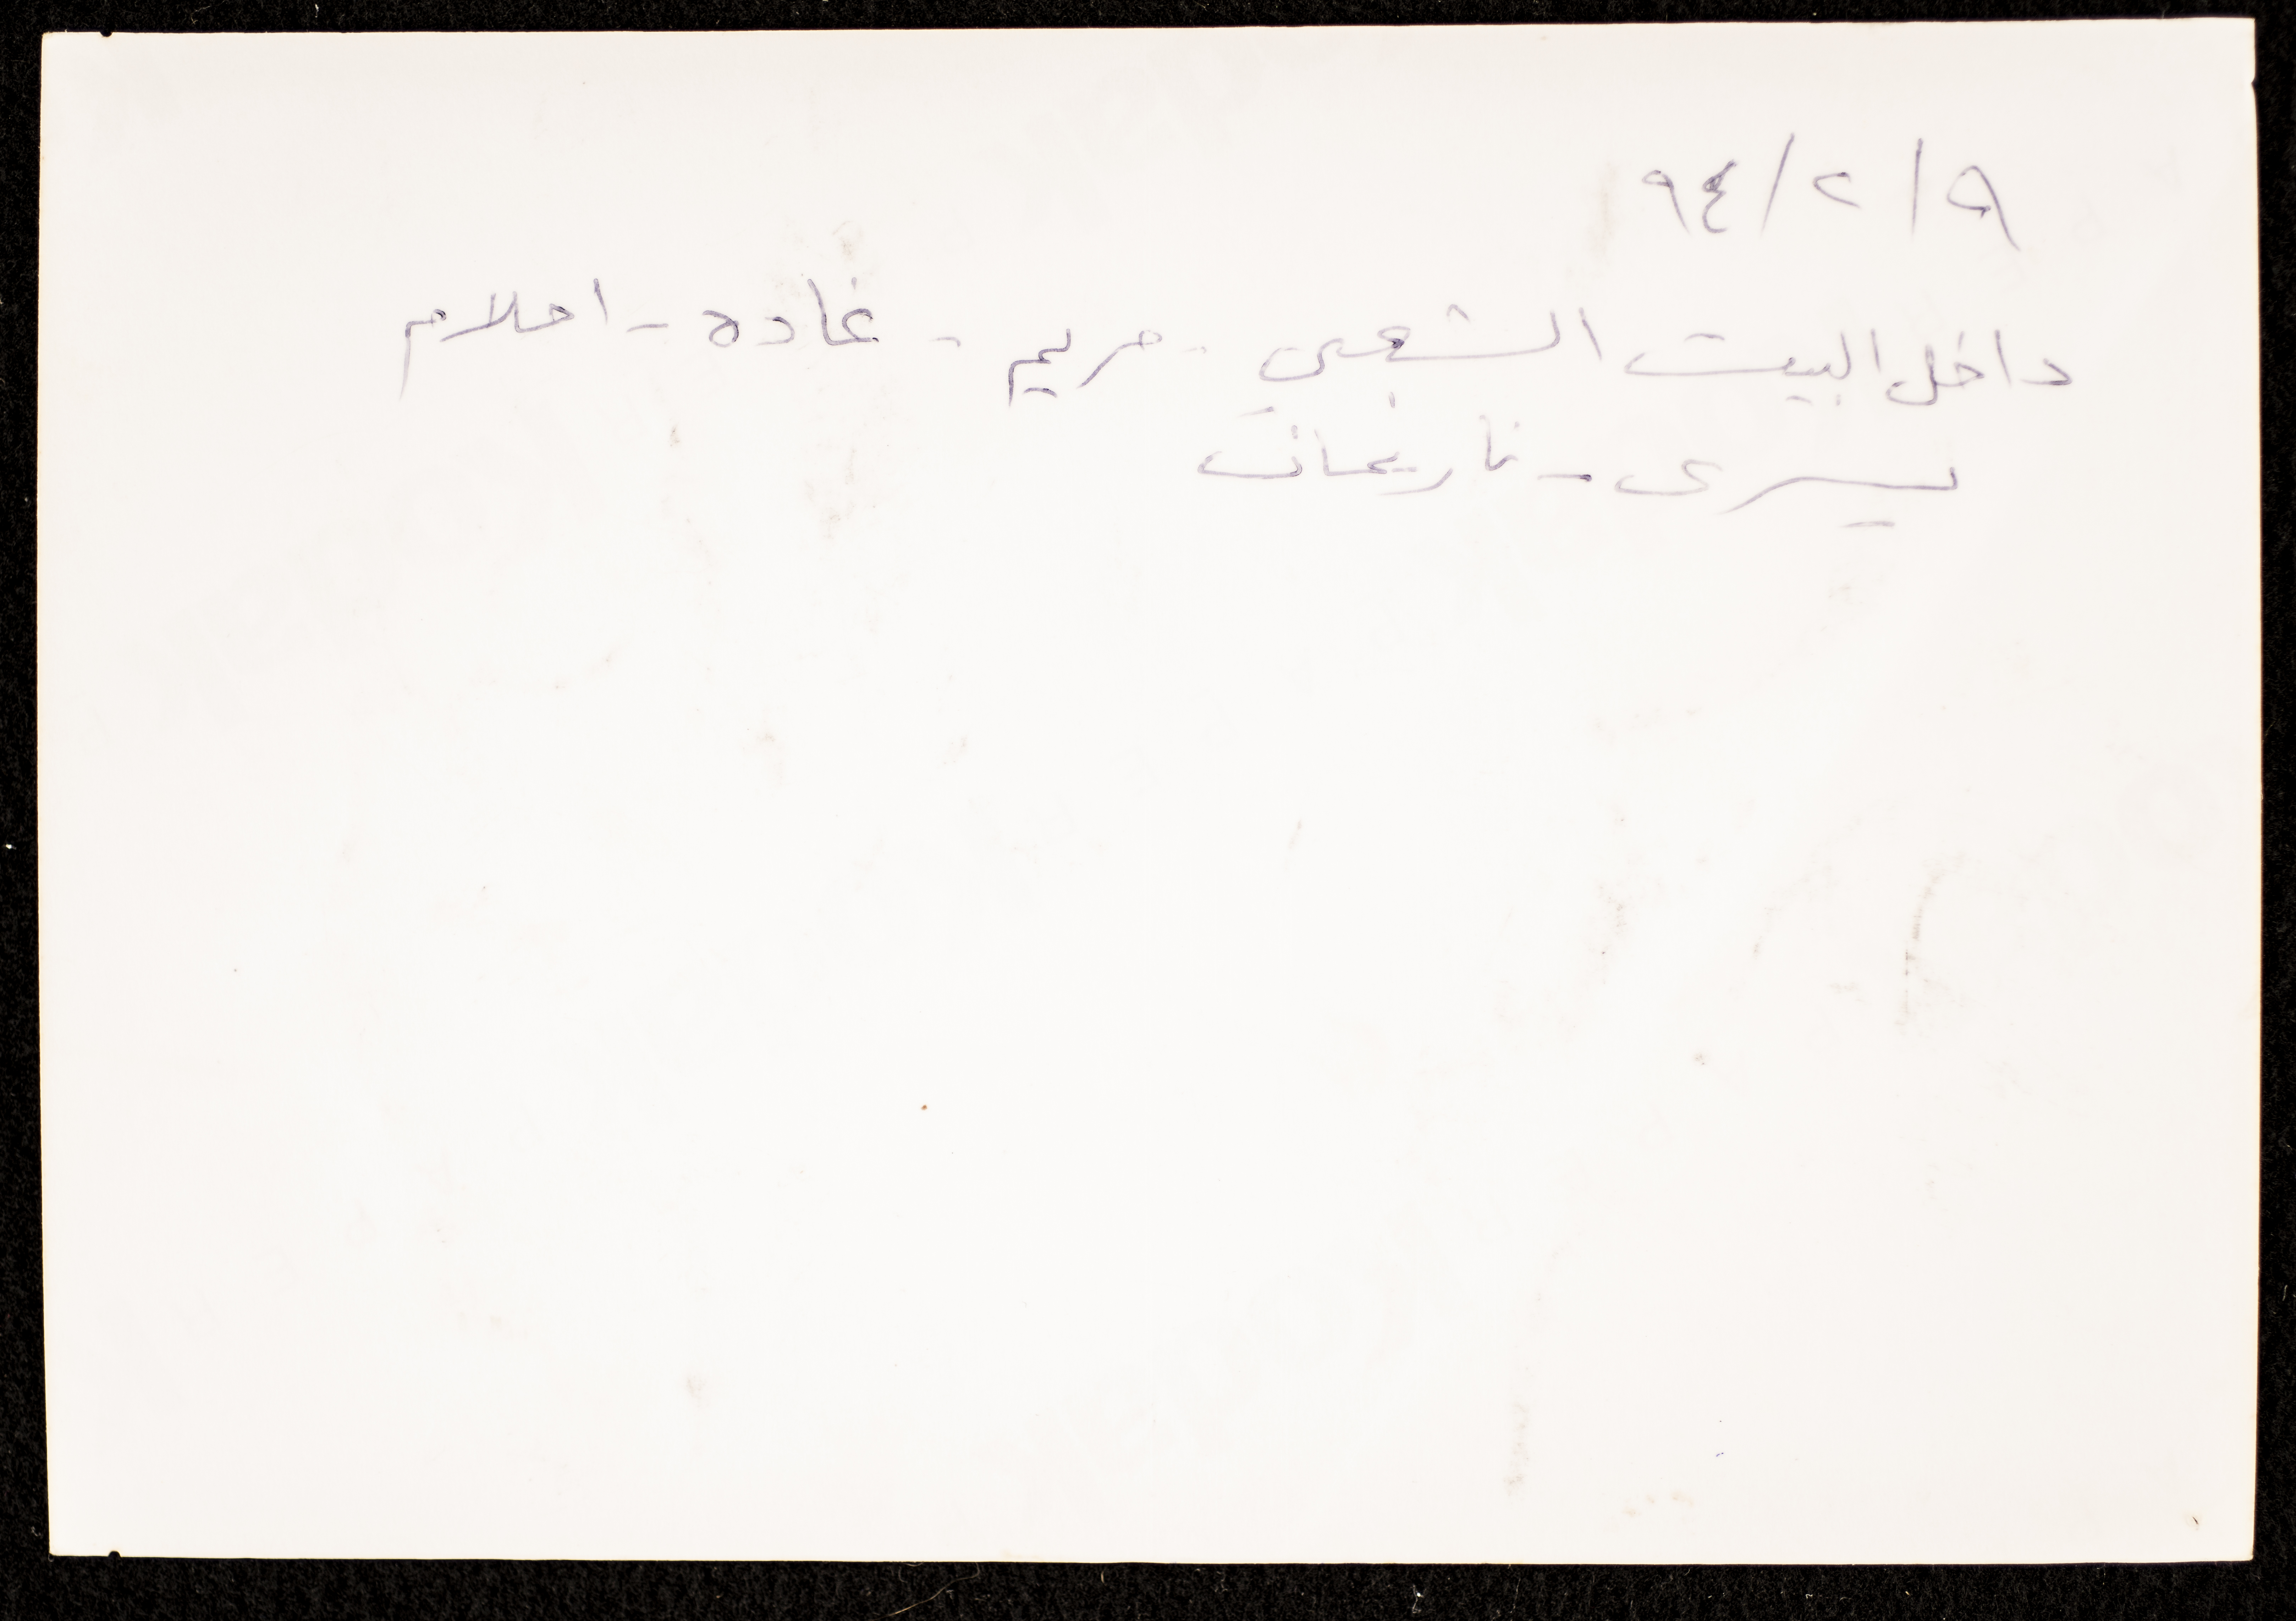 ٩/٢/٩٤
داخل البيت الشعبي - مريم - غاده - احلام
يسرى - ناريمان